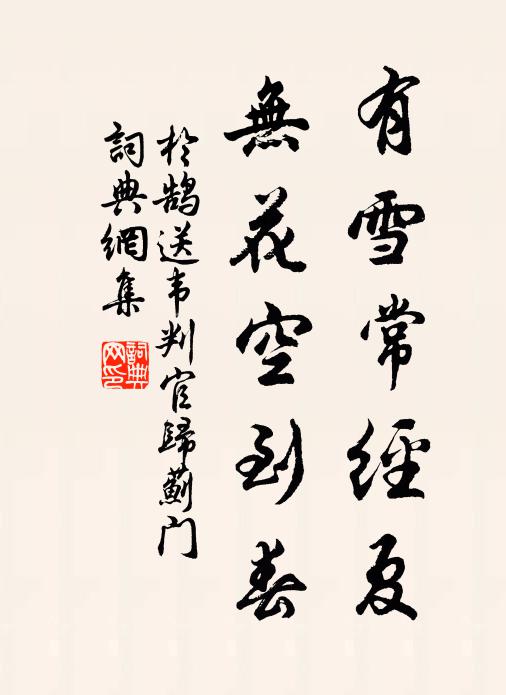 有雪常經夏
無花空到春
於鵠送韦判官歸薊门
詞典網集
詞典網印